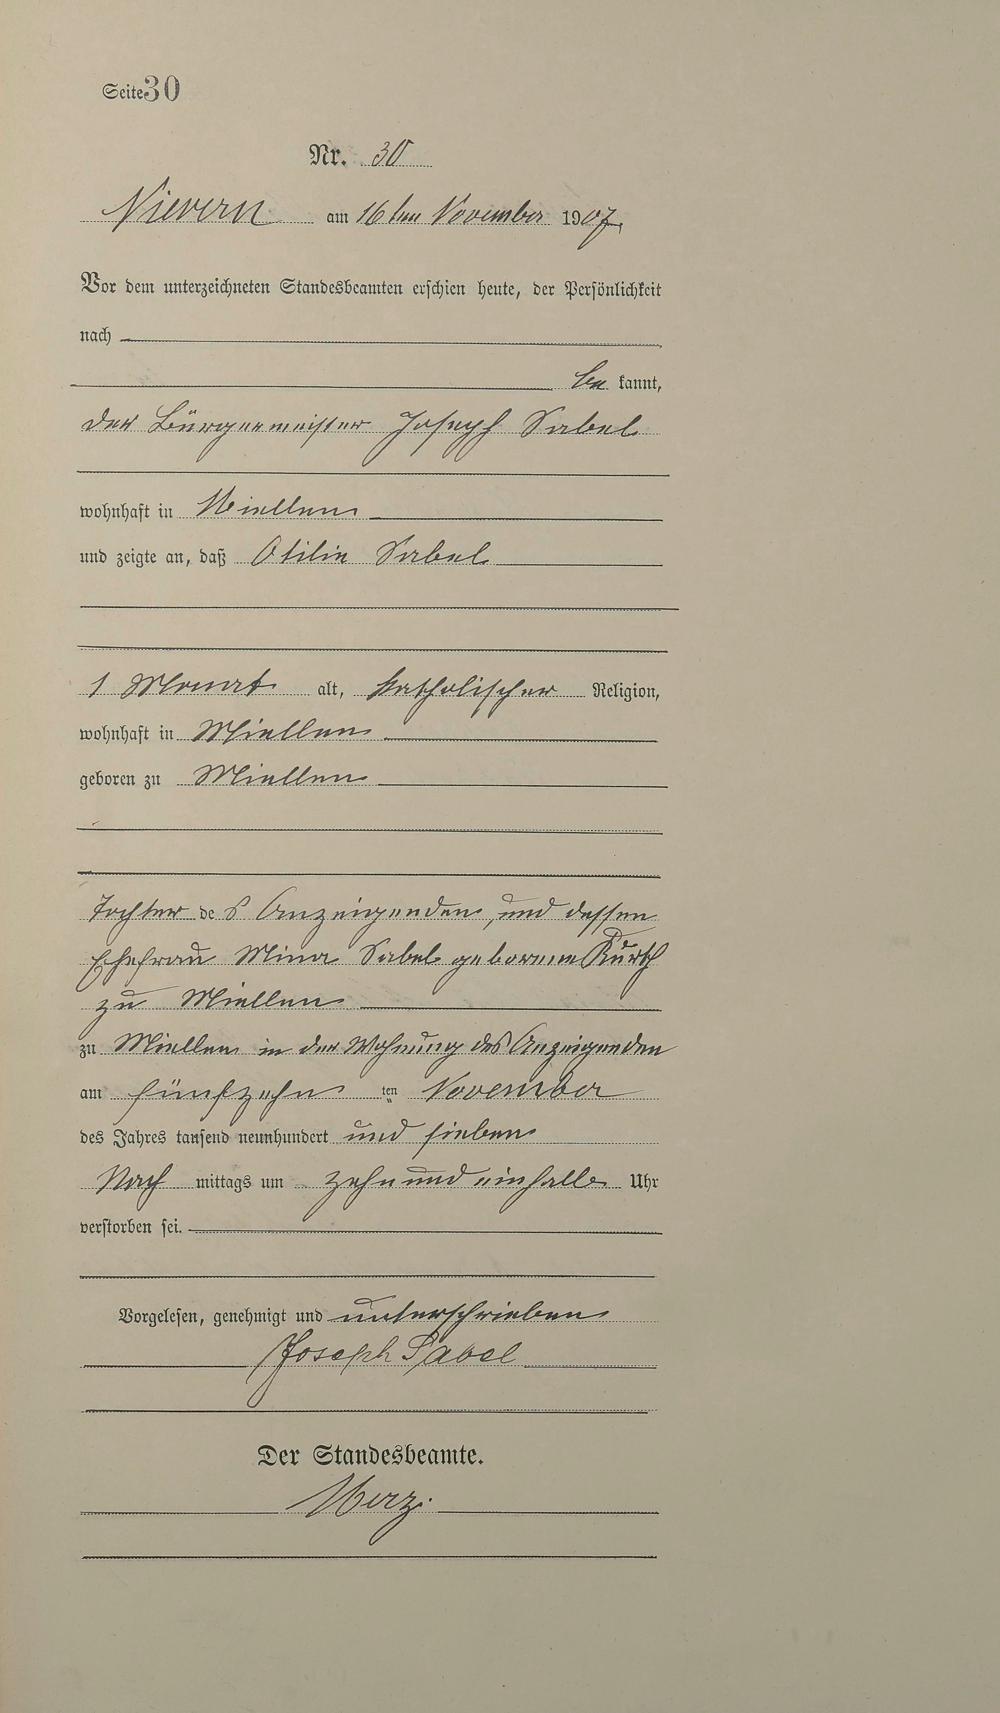 Seite 30
Nr. 30
Nievern am 16ten November 1907.
Vor dem unterzeichneten Standesbeamten erschien heute, der Persönlichkeit
nach
be kannt,
der Bürgermeister Joseph Sabel
wohnhaft in Miellen
und zeigte an, daß Otilie Sabel
1 Monat alt, katholischer Religion,
wohnhaft in Miellen
geboren zu Miellen
Tochter des Anzeigenden, und dessen
Ehefrau Mina Sabel geborene Kurth
zu Miellen
zu Miellen in der Wohnung des Anzeigenden
am fünfzehn ten November
des Jahres tausend neunhundert und sieben
Nach mittags um zehn und einhalb Uhr
verstorben sei.
Vorgelesen, genehmigt und unterschrieben
Joseph Sabel
Der Standesbeamte.